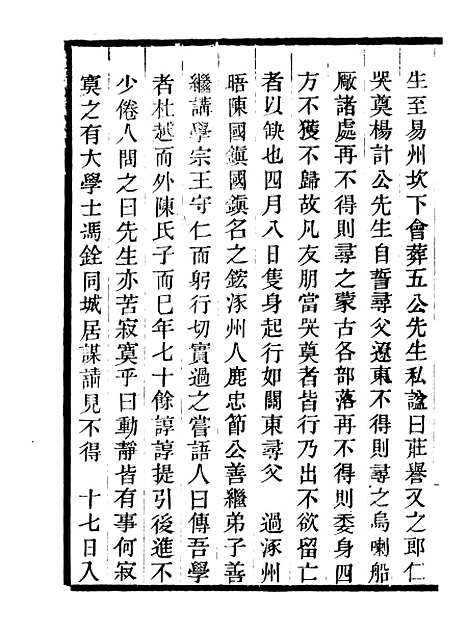 生至易州坎下會葬五公先生私諡曰莊譽又之郎仁
哭奠楊計公先生自誓尋父遼東不得則尋之烏喇船
厰諸處再不得則尋之蒙古各部落再不得則委身四
方不獲不歸故凡友朋當哭奠者皆行乃出不欲留亡
者以缺也四月八日隻身起行如關東尋父　過涿州
晤陳國鎭國鎭名之鋐涿州人鹿忠節公善繼弟子善
繼講學宗王守仁而躬行切實過之嘗語人曰傳吾學
者杜越而外陳氏子而巳年七十餘諄諄提引後進不
少倦人問之曰先生亦苦寂寞乎曰動靜皆有事何寂
寞之有大學士馮銓同城居謀請見不得　十七日入